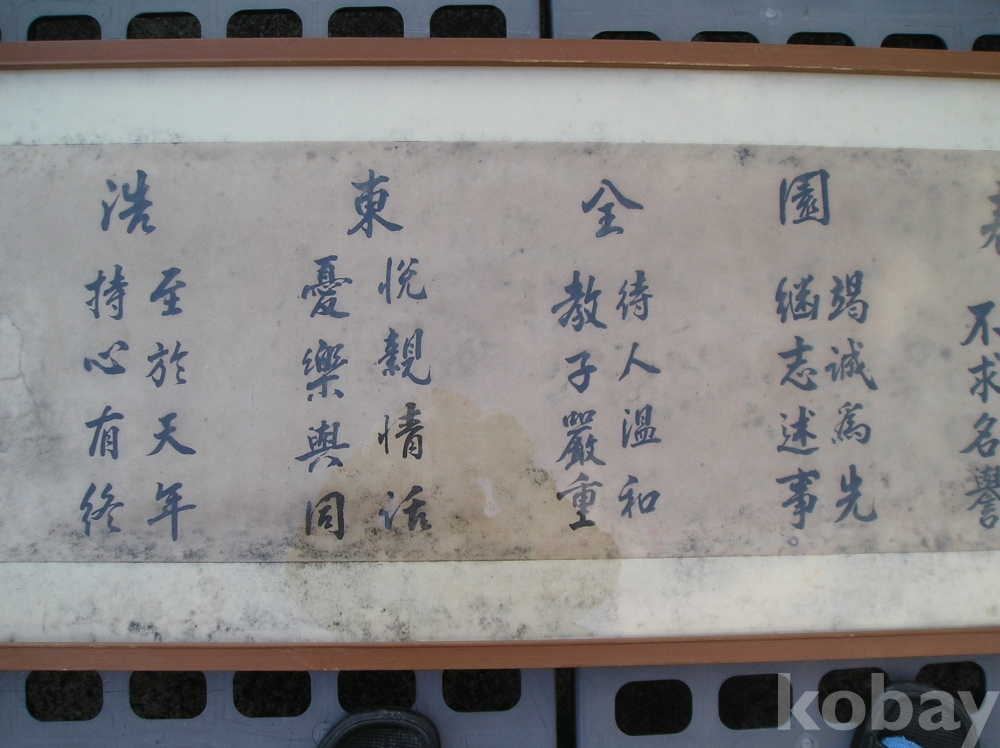 不求名譽
園
竭誠為先
継志述事
全
待人温和
教子嚴重
東
悅親情話
憂樂與同
浩
至於天年
持心有終
kobay